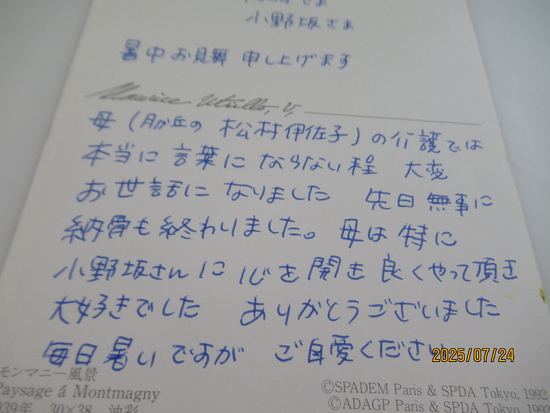 小野坂さま
暑中お見舞 申し上げます
Maurice Utrillo, V,
母（月が丘の 松村伊佐子）の介護では
本当に言葉にならない程 大変
お世話になりました 先日無事に
納骨も終わりました。母は特に
小野坂さんに心を開き良くやって頂き
大好きでした ありがとうございました
毎日暑いですが ご自愛ください
2025/07/24
モンマニー風景
Paysage á Montmagny
939年 30×38 油彩
©SPADEM Paris & SPDA Tokyo, 1992
©ADAGP Paris & SPDA Tokyo, 1992